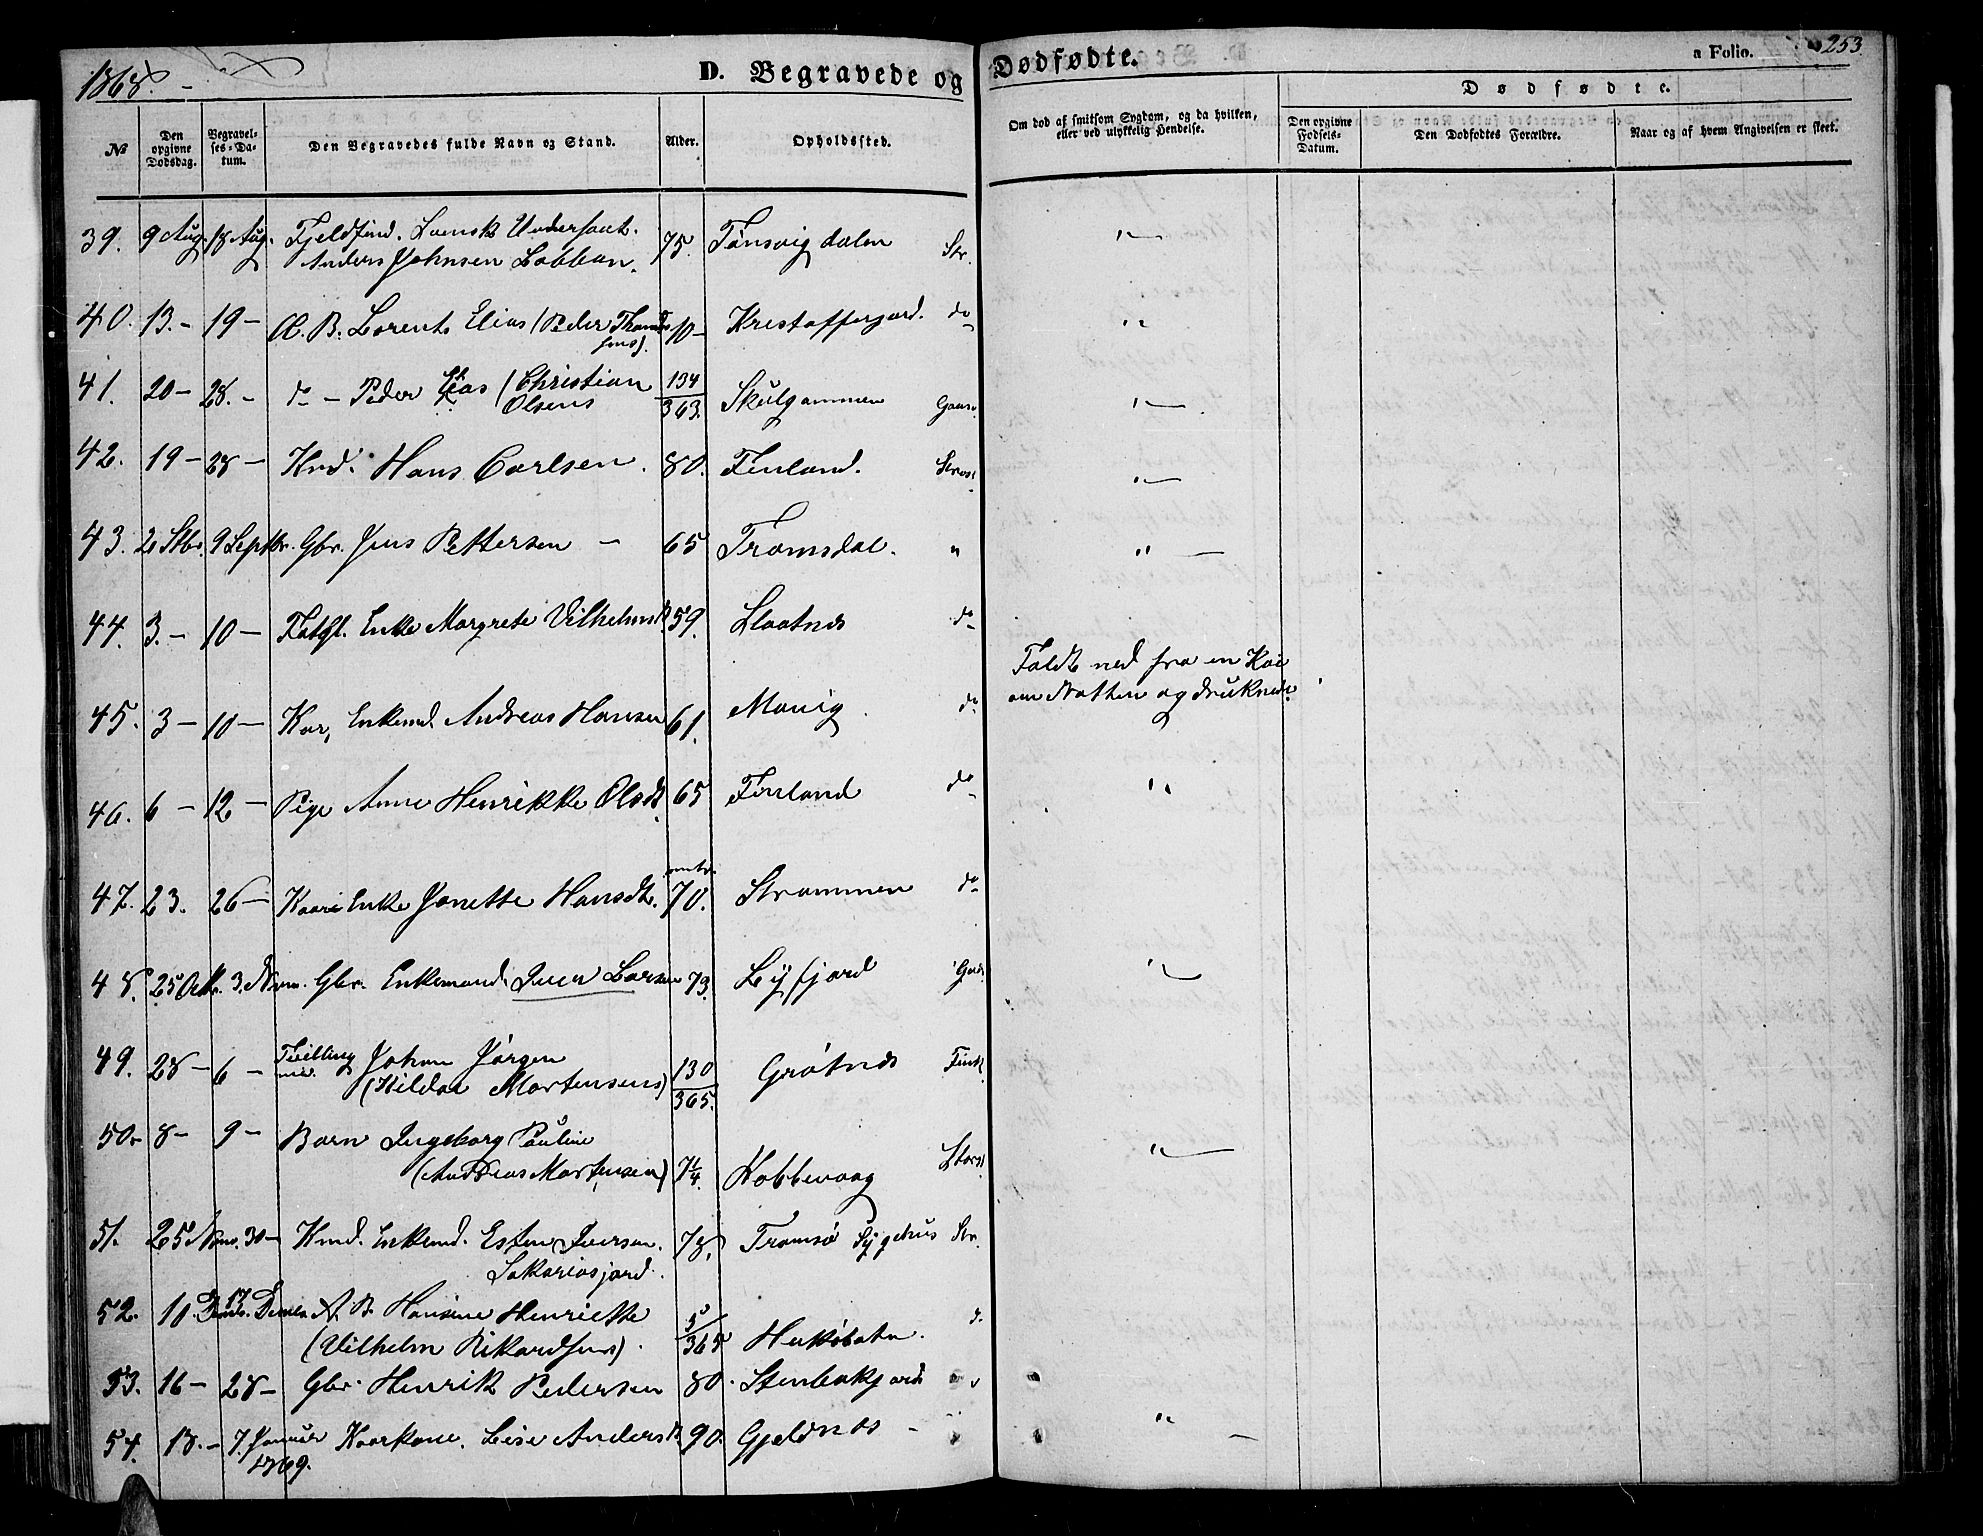 1868.
D. Begravede og Dødfødte.
a Folio. 253
№
Den opgivne Dødsdag.
Begravelses-Datum.
Den Begravedes fulde Navn og Stand.
Alder.
Opholdssted.
Om død af smitsom Sygdom, og da hvilken, eller ved ulykkelig Hendelse.
Dødfødte.
Den opgivne Fødsels-Datum.
Den Dødfødtes Forældre.
Naar og af hvem Angivelsen er skeet.
39. 9 Aug. 18 Aug. Fjeldfind. Svensk Undersaat. 75. Tønsvigdalen Str. "—
Anders Johnsen Labban.
40. 13.– 19– Æ. B. Lorents Elias (Peder Thomas 10– Kristoffergjord. do "
sens).
41. 20– 28.– do – Peder (Christian 134/363. Skulgammen "—
Olsens
42. 19– 28– Knd. Hans Carlsen. 80. Finland. "—
43. 2 Stbr. 9 Septbr. Gbr. Jens Pettersen – 65 Tromsdal. " "—
44. 3.– 10– Fatgl. Enke Margrete Vilhelmsdt. 59. Slaatnes do
Faldt ned fra en Kai
om Natten og druknede.
45. 3– 10– Kar, Enkemd. Andreas Hansen 61. Movig do
46. 6– 12– Pige Anne Henrikke Olsdt. 65 Finland do "
47. 23. 26– Kaar Enke Janette Hansdt. omtr. 70. Strammen do
48. 25 Octbr. 3. Nvm. Gbr. Enkemand. Iver Larsen 73. Lyfjord "
49. 28– 6– Tvilling Johan Jørgen 130/365. Grøtnes
(Hildal Mortensens)
50. 8– 9– Barn Ingeborg Pauline
(Andreas Mortensen) 7¼. Kobbevaag "—
51. 25 Nov. 30– Knd. Enkemd. Esten Iversen. 78, Tromsø Sygehus Str.
Sakariasjord.
52. 10 Decbr. 17 Decbr. Æ. B. Hansine Henriette 5/365 do
(Vilhelm Rikardsens).
53. 16– 28– Gbr. Henrik Pedersen 80. Stenbakjord
54. 18.– 7. Januar Kaarkone. Lise Andersdt. 90. Gjeldnes – "
1869.